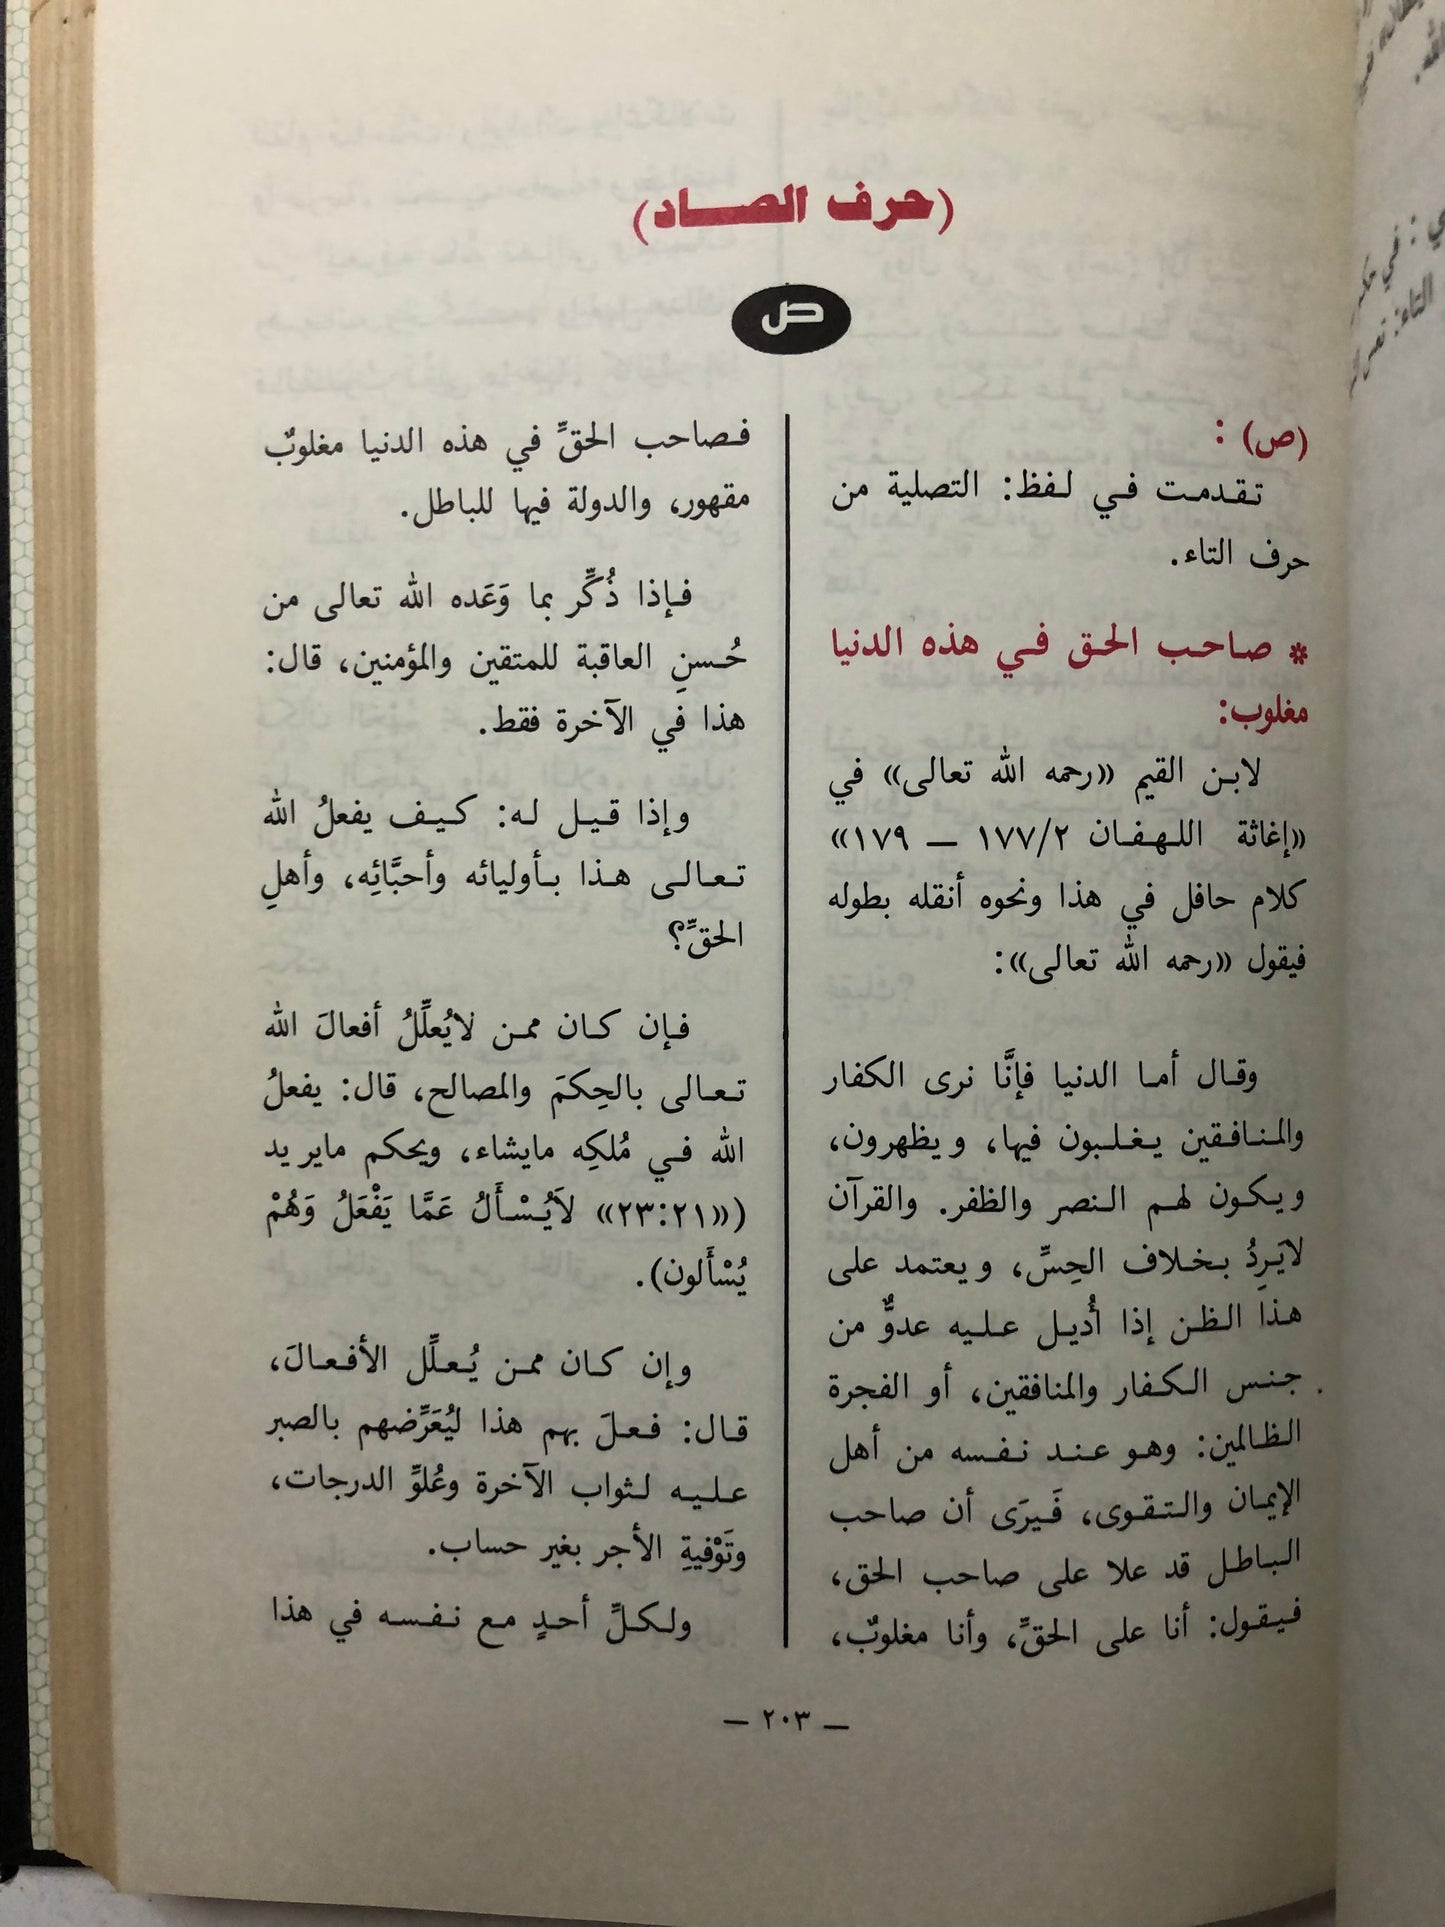 (حرف الصاد)
ص
(ص) :
تقدمت في لفظ: التصلية من
حرف التاء.
* صاحب الحق في هذه الدنيا
مغلوب:
لابن القيم «رحمه الله تعالى» في
«إغاثة اللهفان ١٧٧/٢ – ١٧٩»
كلام حافل في هذا ونحوه أنقله بطوله
فيقول «رحمه الله تعالى»:
وقال أما الدنيا فإنَّا نرى الكفار
والمنافقين يغلبون فيها، ويظهرون،
ويكون لهم النصر والظفر. والقرآن
لايَرِدُ بخلاف الحِسِّ، ويعتمد على
هذا الظن إذا أُديل عليه عدوٌّ من
جنس الكفار والمنافقين، أو الفجرة
الظالمين: وهو عند نفسه من أهل
الإيمان والتقوى، فَيرَى أن صاحب
الباطل قد علا على صاحب الحق،
فيقول: أنا على الحقِّ، وأنا مغلوبٌ،
فصاحب الحقِّ في هذه الدنيا مغلوبٌ
مقهور، والدولة فيها للباطل.
فإذا ذُكِّر بما وَعَده الله تعالى من
حُسنِ العاقبة للمتقين والمؤمنين، قال:
هذا في الآخرة فقط.
وإذا قيل له: كيف يفعلُ الله
تعالى هذا بأوليائه وأحبَّائِه، وأهلِ
الحقِّ؟
فإن كان ممن لايُعلِّلُ أفعالَ الله
تعالى بالحِكمَ والمصالح، قال: يفعلُ
الله في مُلكِه مايشاء، ويحكم مايريد
(«٢٣:٢١» لاَيُسْأَلُ عَمَّا يَفْعَلُ وَهُمْ
يُسْأَلون).
وإن كان ممن يُعلِّل الأفعالَ،
قال: فعلَ بهم هذا ليُعَرِّضهم بالصبر
عليه لثواب الآخرة وعُلوِّ الدرجات،
وتَوْفيةِ الأجر بغير حساب.
ولكلِّ أحدٍ مع نفسه في هذا
– ٢٠٣ –